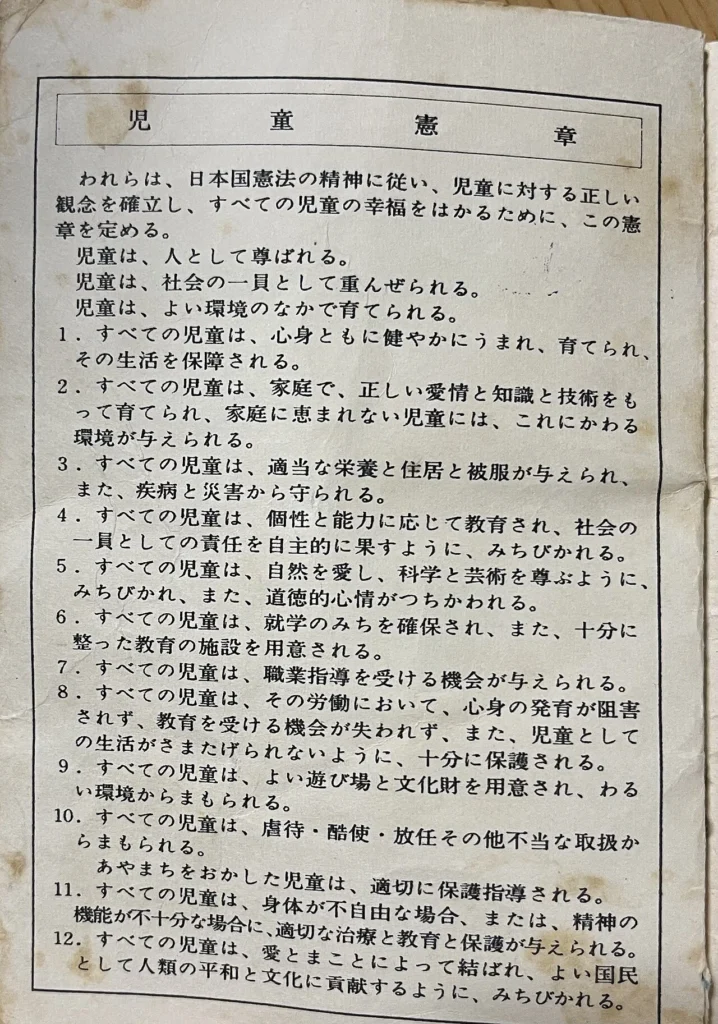 児童憲章
われらは、日本国憲法の精神に従い、児童に対する正しい
観念を確立し、すべての児童の幸福をはかるために、この憲
章を定める。
児童は、人として尊ばれる。
児童は、社会の一員として重んぜられる。
児童は、よい環境のなかで育てられる。
1．すべての児童は、心身ともに健やかにうまれ、育てられ、
その生活を保障される。
2．すべての児童は、家庭で、正しい愛情と知識と技術をも
って育てられ、家庭に恵まれない児童には、これにかわる
環境が与えられる。
3．すべての児童は、適当な栄養と住居と被服が与えられ、
また、疾病と災害から守られる。
4．すべての児童は、個性と能力に応じて教育され、社会の
一員としての責任を自主的に果すように、みちびかれる。
5．すべての児童は、自然を愛し、科学と芸術を尊ぶように、
みちびかれ、また、道徳的心情がつちかわれる。
6．すべての児童は、就学のみちを確保され、また、十分に
整った教育の施設を用意される。
7．すべての児童は、職業指導を受ける機会が与えられる。
8．すべての児童は、その労働において、心身の発育が阻害
されず、教育を受ける機会が失われず、また、児童として
の生活がさまたげられないように、十分に保護される。
9．すべての児童は、よい遊び場と文化財を用意され、わる
い環境からまもられる。
10．すべての児童は、虐待・酷使・放任その他不当な取扱か
らまもられる。
あやまちをおかした児童は、適切に保護指導される。
11．すべての児童は、身体が不自由な場合、または、精神の
機能が不十分な場合に、適切な治療と教育と保護が与えられる。
12．すべての児童は、愛とまことによって結ばれ、よい国民
として人類の平和と文化に貢献するように、みちびかれる。